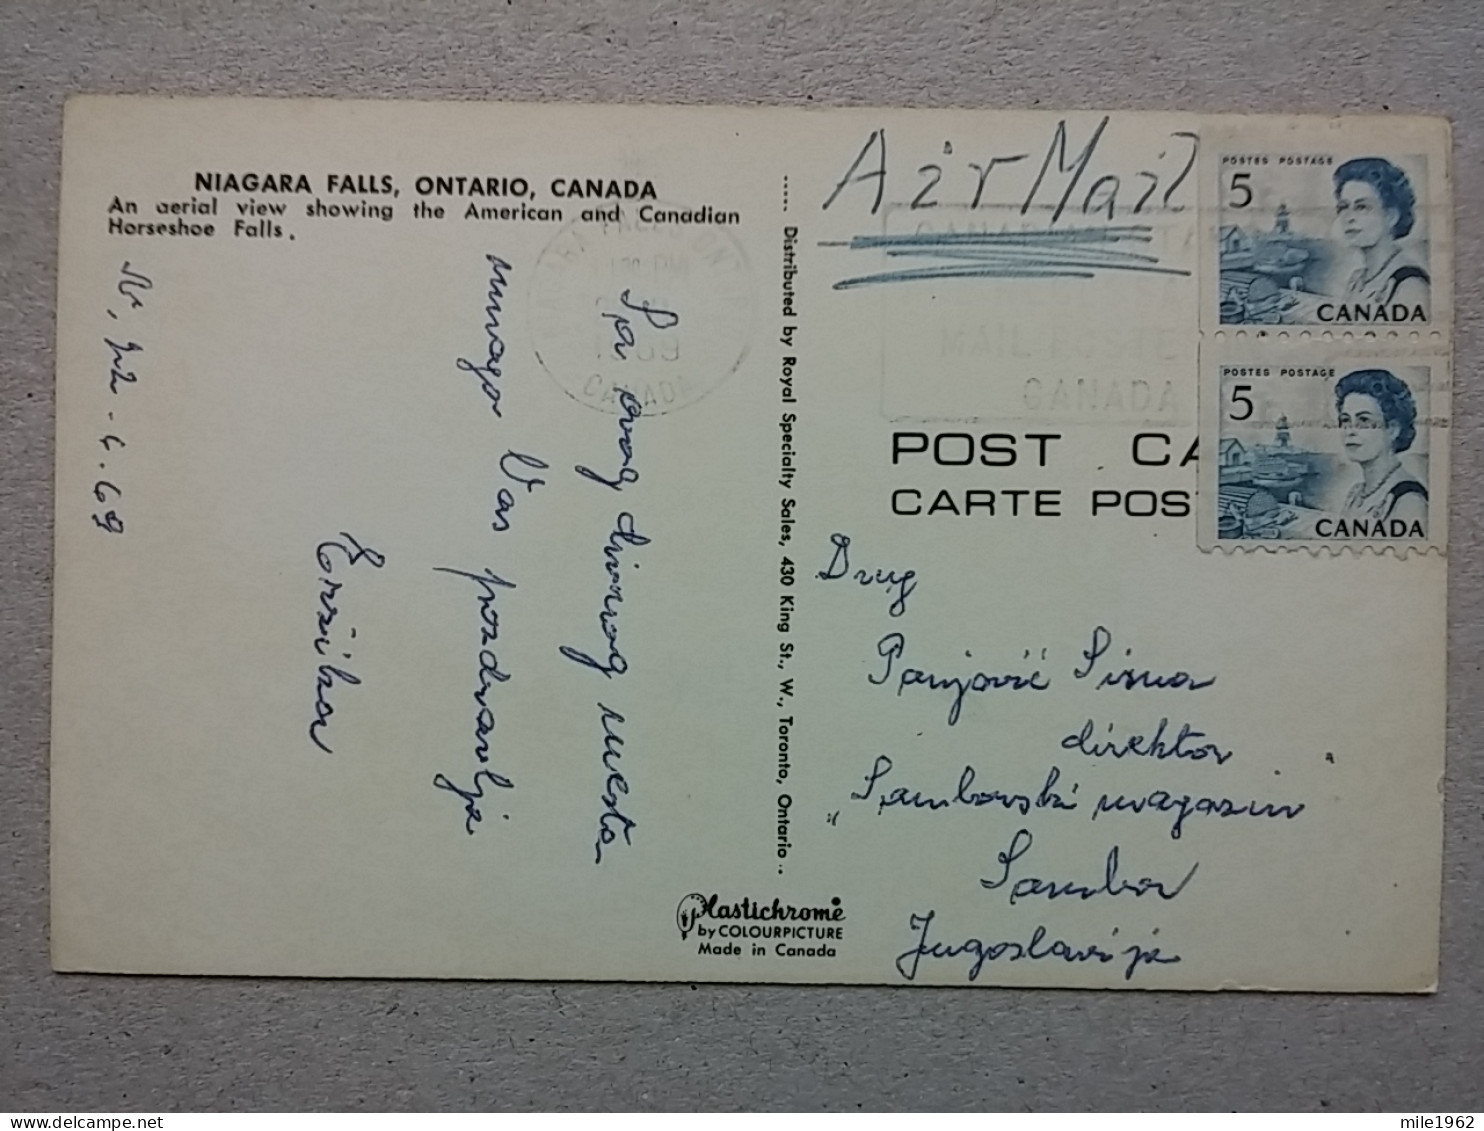 NIAGARA FALLS, ONTARIO, CANADA
An aerial view showing the American and Canadian
Horseshoe Falls.
Sa ovog divnog mesta
mnogo Vas pozdravlja
4.69
Distributed by Royal Specialty Sales, 430 King St., W., Toronto, Ontario
Plastichrome
by COLOURPICTURE
Made in Canada
CANADA
Air Mail
MAIL POSTE
CANADA
POSTES POSTAGE
5
CANADA
POSTES POSTAGE
5
CANADA
POST CA
CARTE POS
Drug
direktor
"Somborski magazin"
Sombor
Jugoslavija
mile1962